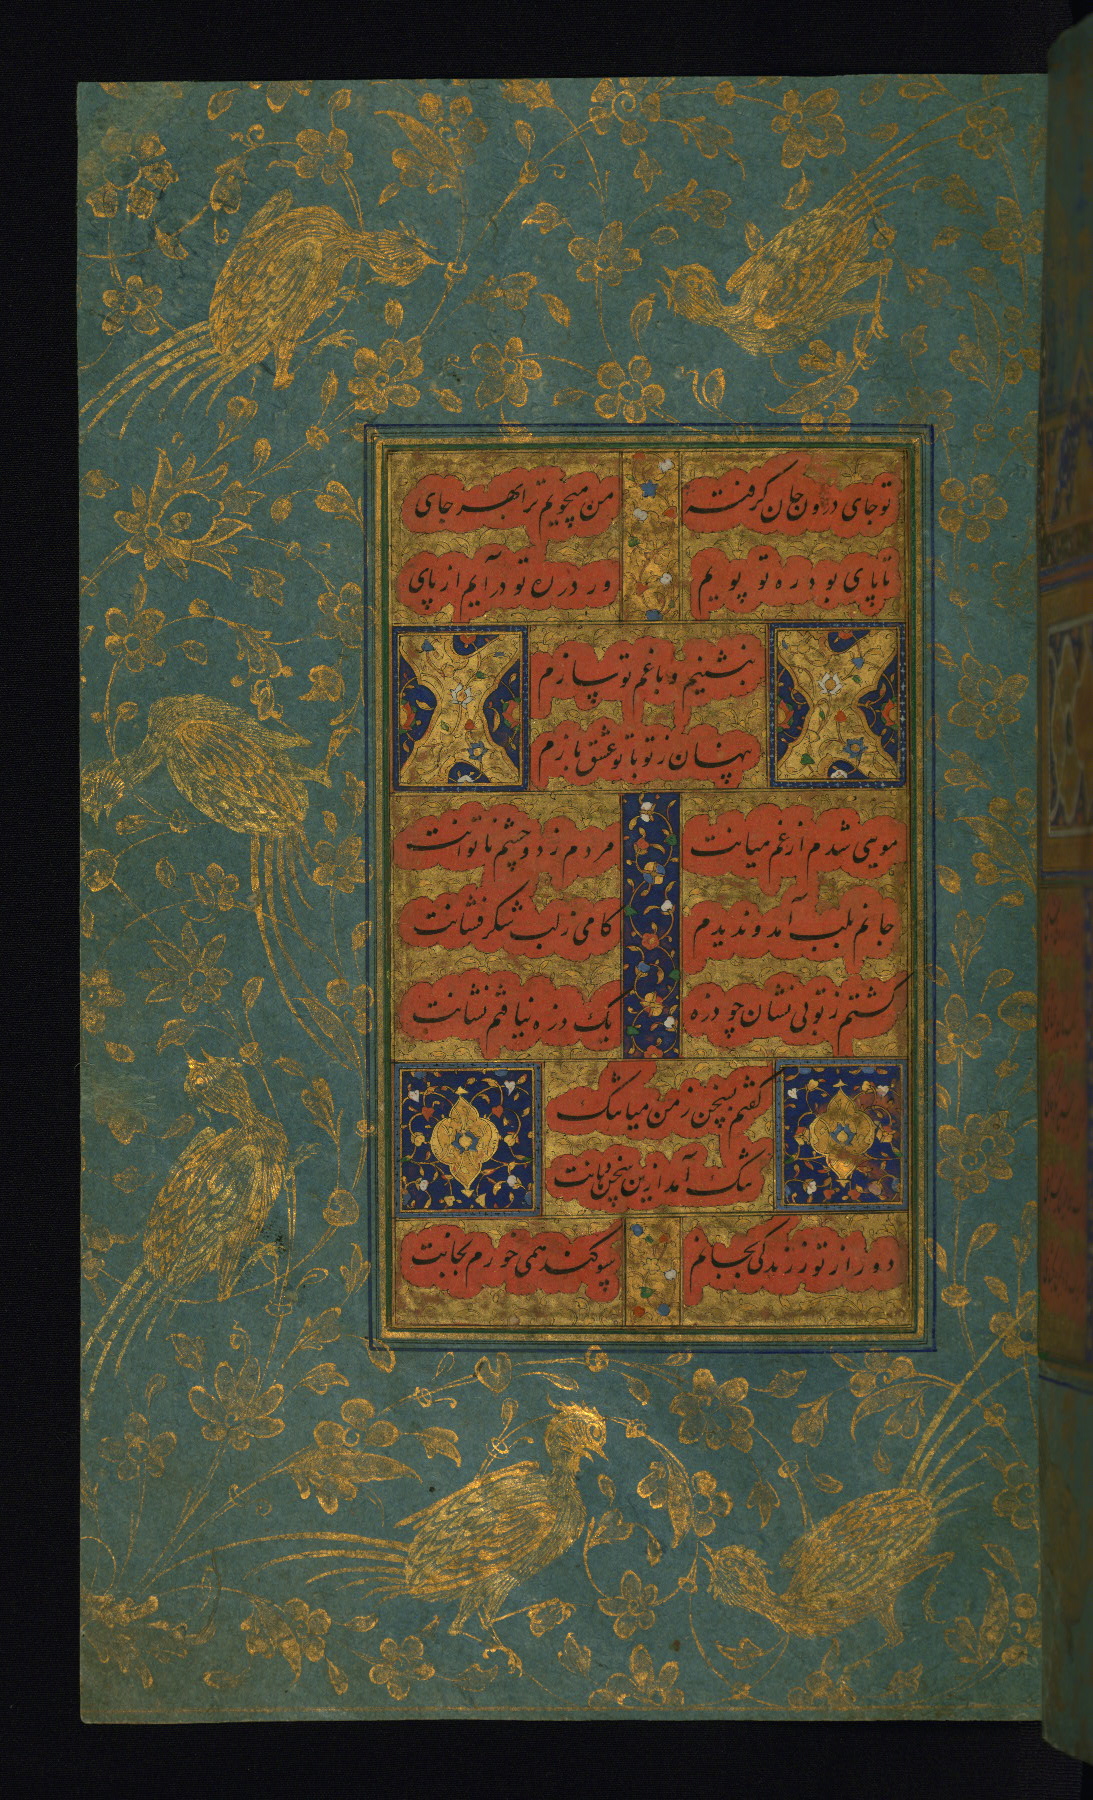 تو جای درون جان گرفته من میجویم ترا بهر جای
تا پای بود ره تو پویم ور در ره تو درآیم از پای
بنشینم و با غم تو سازم
پنهان ز تو با تو عشق بازم
مویی شدم از غم میانت مردم ز دو چشم ناتوانت
جانم بلب آمد و ندیدم کامی ز لب شکر فشانت
گشتم ز تو بی نشان چو ذره یک ذره نیافتم نشانت
گفتم سخن ز من میا تنگ
تنگ آمد ازین سخن دهانت
دور از تو ز زندگی بجانم سوگند همی خورم بجانت